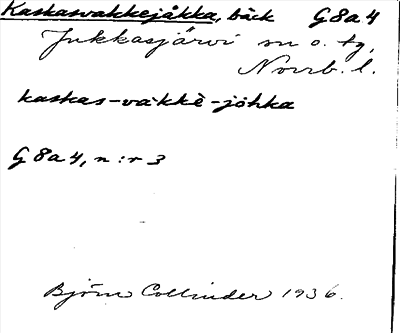 Kaskasvakkejåkka, bäck G8a4
Jukkasjärvi sn o. tg,
Norrb. l.
kaskas-va·kkē-johka
G8a4, n:r 3
Björn Collinder 1936.